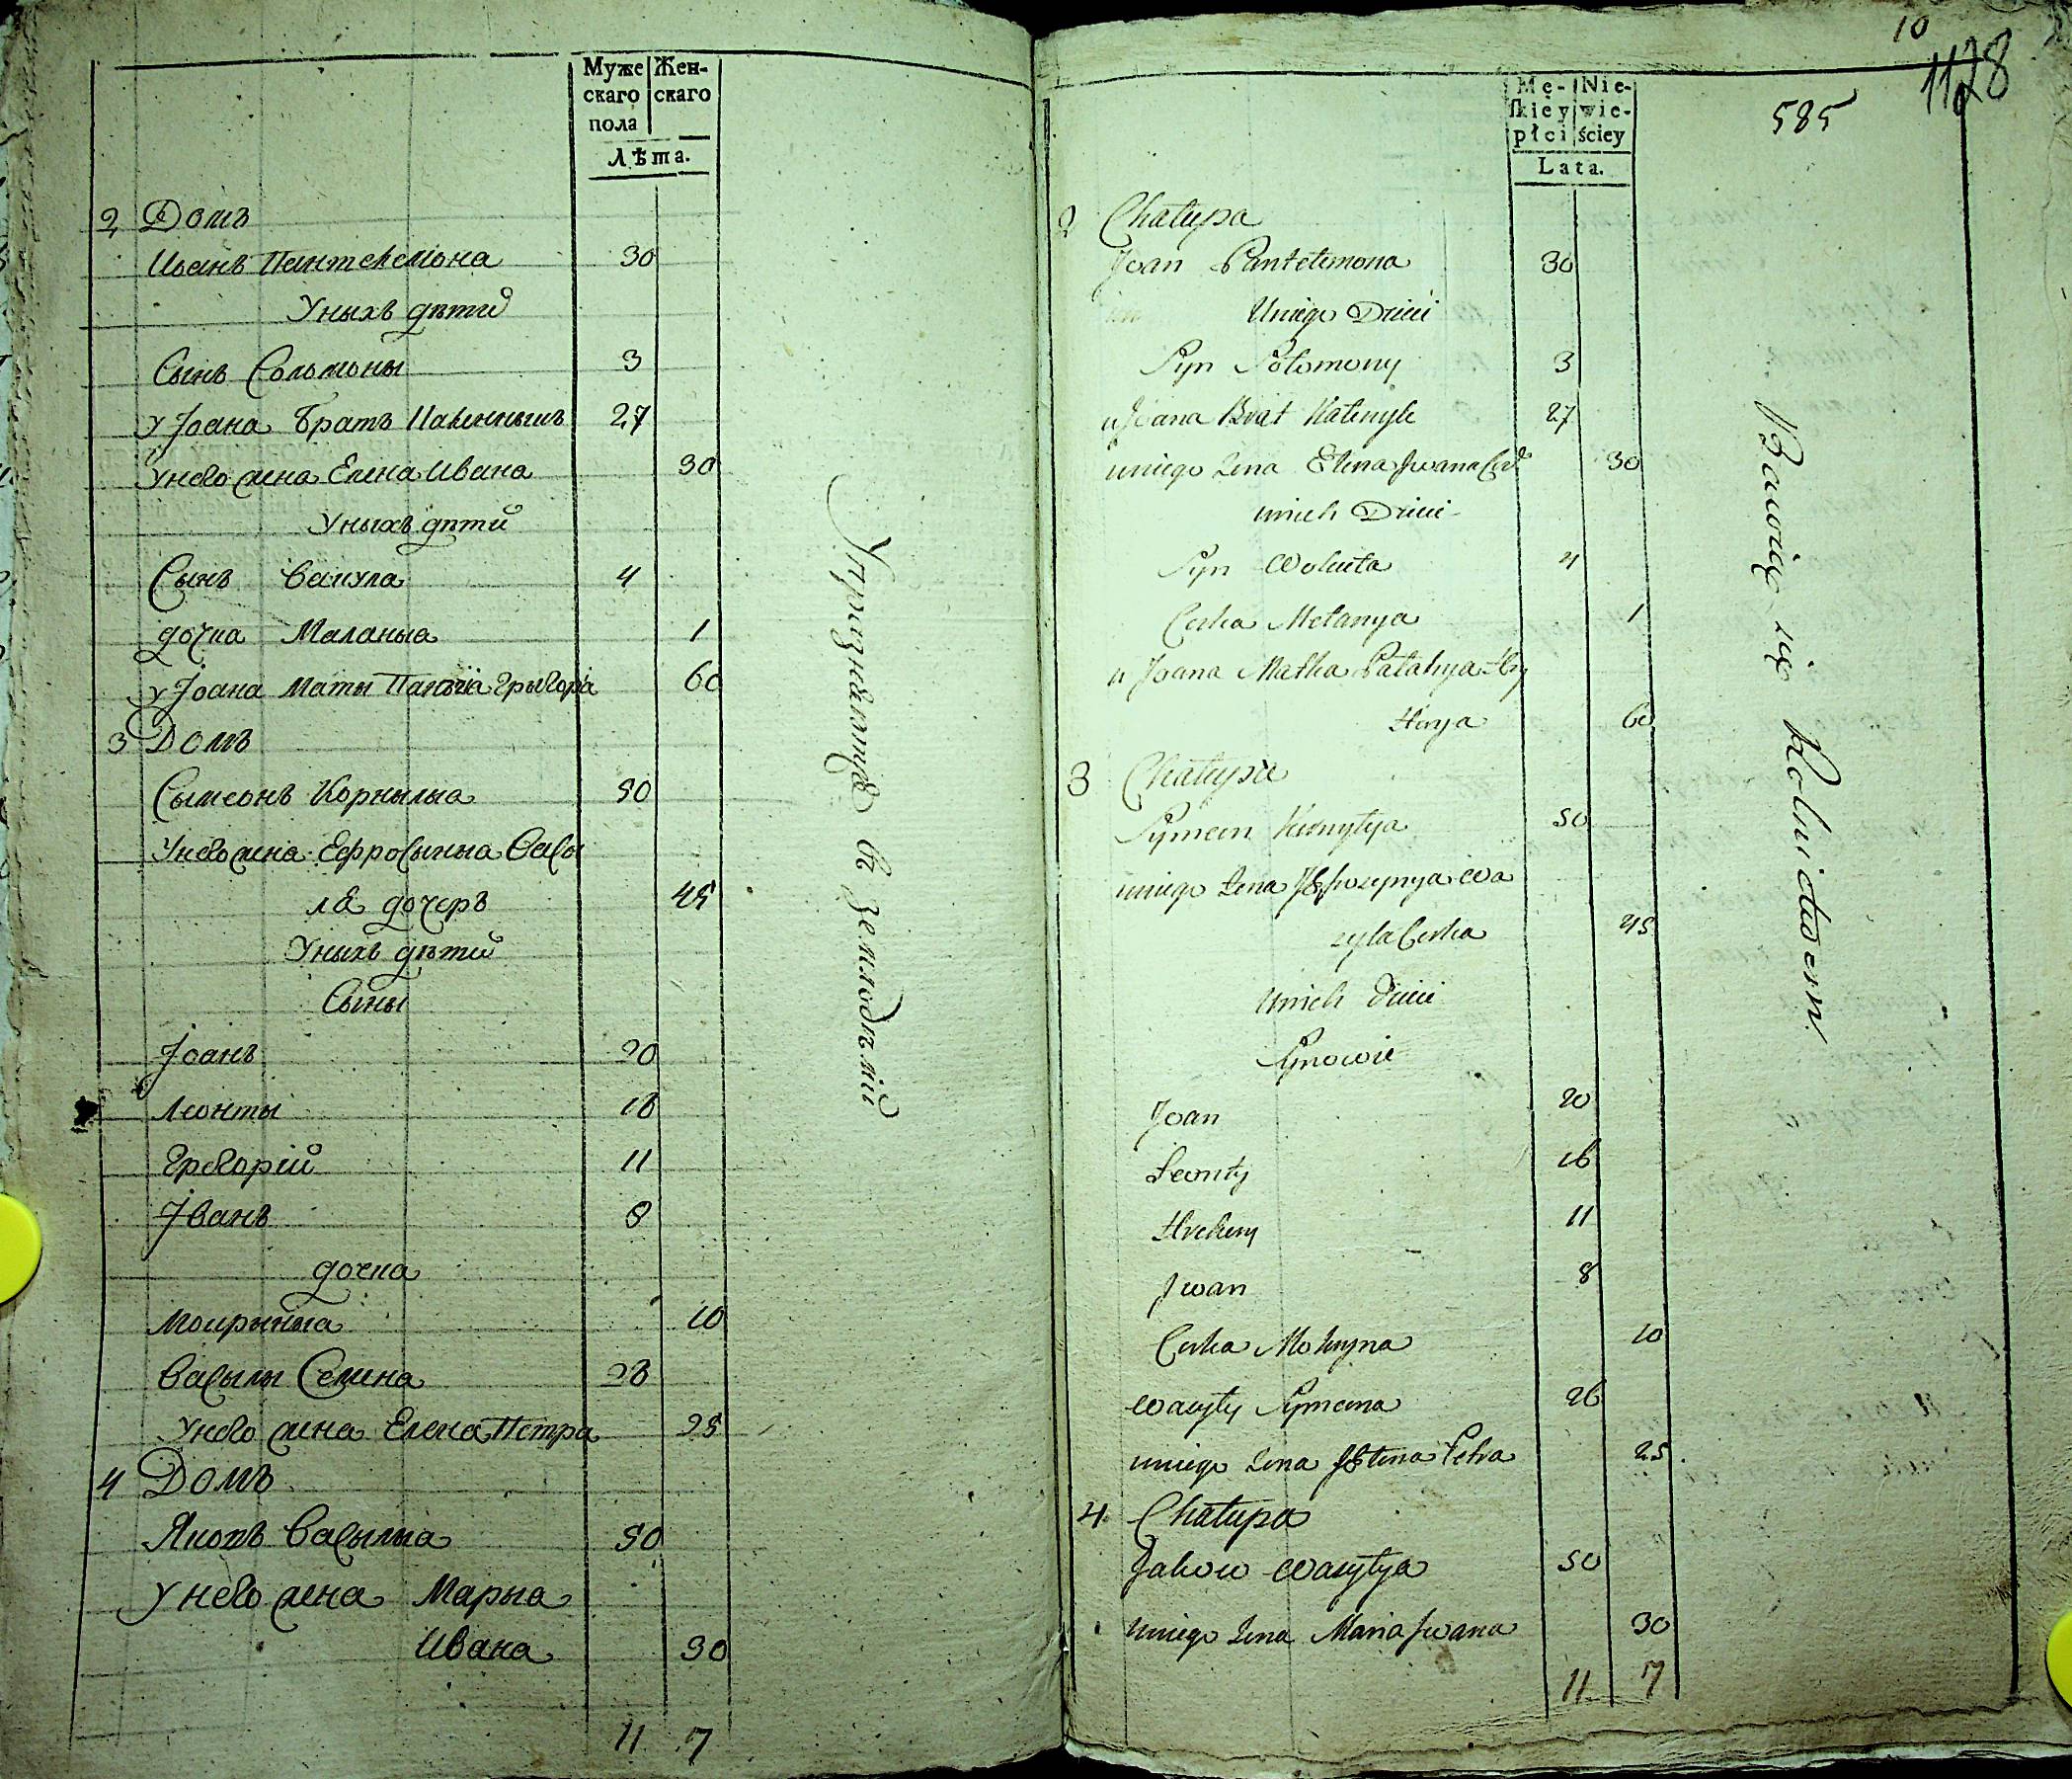 Муже Жен-
скаго скаго
пола
Лѣта.
2 Домъ
Иванъ Пантелемона 30
Уныхъ дѣти
Сынъ Соломоны 3
у Јоана братъ Калынныкъ 27
Унего жена Елена Ивана 30
Уныхъ дѣти
Сынъ Вакула 4
дочка Маланыа 1
у Јоана Мати Палагія Григоріа 60
3 Домъ
Сымеонъ Корнылыа 50
Унего жена Ефросыныа Васы
лѧ дочеръ 45
Уныхъ дѣти
Сыны
Јоанъ 20
Леонты 16
Грегорій 11
Јванъ 8
дочка
Мокрынна 10
Васылы Семена 26
Унего жена Елена Петра 25
4 Домъ
Яковъ Васылыа 50
Унего жена Марыа
Ивана 30
11 7
Упражнѧютцѧ въ земледѣліи
10
1128
585
Mę- Nie-
ſkiey wie-
płci ściey
Lata.
2 Chałupa
Joan Pantelemona 30
Uniego Dzieci
Syn Sołomony 3
u Joana Brat Kalenyk 27
uniego żona Elena Jwana Cor 30
unich Dzieci
Syn Wokuła 4
Corka Mełanya 1
u Joana Matka Pałahya Hry
horya 60
3 Chałupa
Symeon Kornyłya 50
uniego żona Jefrozynya Wa
zyla Corka 45
Unich Dzieci
Synowie
Joan 20
Leonty 16
Hrehory 11
Jwan 8
Corka Mokryna 10
Wasyly Symeona 26
uniego żona Jelena Petra 25
4 Chałupa
Jakow Wasylya 50
uniego żona Maria Jwana 30
11 7
Bawią się Rolnictwem.